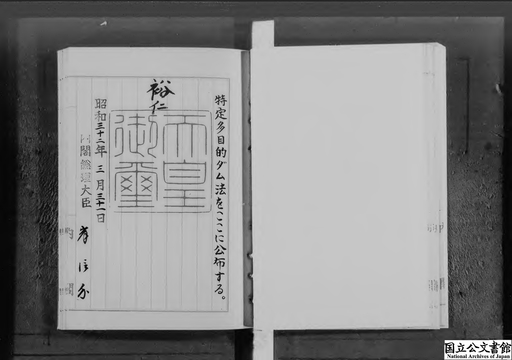 特定多目的ダム法をここに公布する。
裕仁
天皇
御璽
昭和三十二年三月三十一日
内閣総理大臣
岸信介
国立公文書館
National Archives of Japan